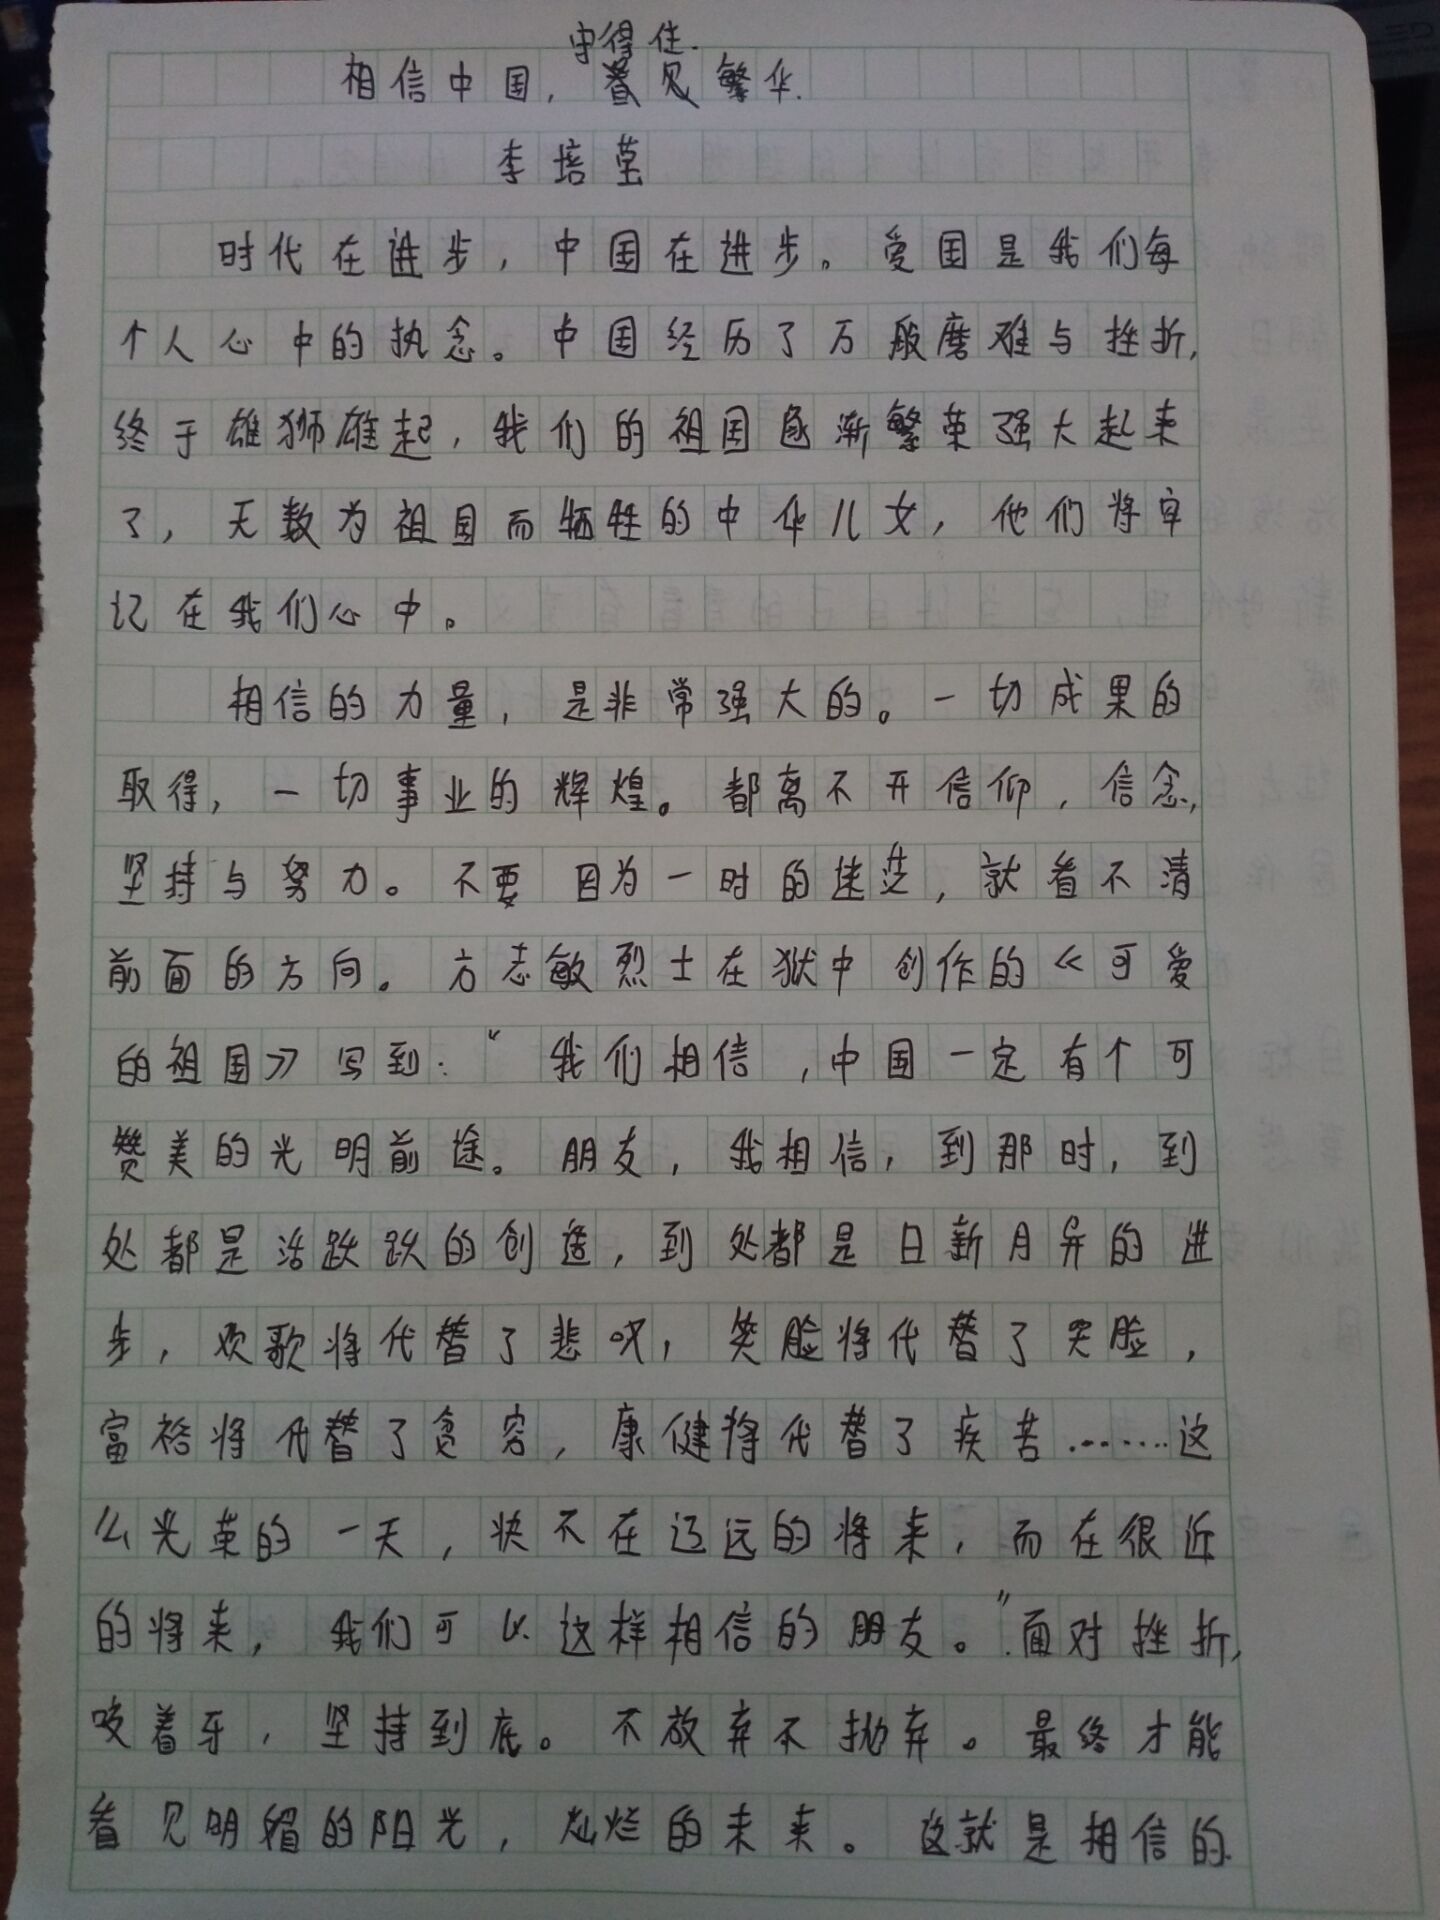 守得住
相信中国,看见繁华.
李培莹
时代在进步,中国在进步。爱国是我们每
个人心中的执念。中国经历了万般磨难与挫折,
终于雄狮雄起,我们的祖国逐渐繁荣强大起来
了,无数为祖国而牺牲的中华儿女,他们将牢
记在我们心中。
相信的力量,是非常强大的。一切成果的
取得,一切事业的辉煌。都离不开信仰,信念,
坚持与努力。不要因为一时的迷茫,就看不清
前面的方向。方志敏烈士在狱中创作的《可爱
的祖国》写到:“我们相信,中国一定有个可
赞美的光明前途。朋友,我相信,到那时,到
处都是活跃跃的创造,到处都是日新月异的进
步,欢歌将代替了悲叹,笑脸将代替了哭脸,
富裕将代替了贫穷,康健将代替了疾苦……这
么光荣的一天,决不在辽远的将来,而在很近
的将来,我们可以这样相信的朋友。”面对挫折,
咬着牙,坚持到底。不放弃不抛弃。最终才能
看见明媚的阳光,灿烂的未来。这就是相信的